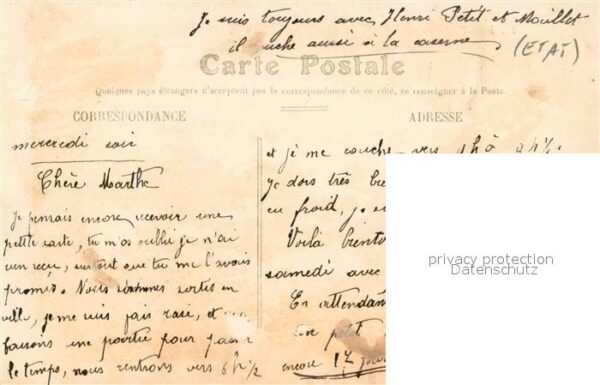 Je suis toujours avec Henri Petit et Mouillet
il couche aussi à la caserne
(ETAT)
Carte Postale
Quelques pays étrangers n'acceptant pas la correspondance de ce côté, se renseigner à la Poste.
CORRESPONDANCE
ADRESSE
mercredi soir
Chère Marthe
Je pensais encore recevoir une
petite carte, tu m'as oublié je n'ai
rien reçu, surtout que tu me l'avais
promis. Nous sommes sortis en
ville, je me suis fais rasé, et
faisons une partie pour passer
le temps, nous rentrons vers 8h 1/2
et je me couche vers
je dors très
eu froid, je
Voilà bientôt
samedi avec
En attendant
un petit
encore 17 jours
privacy protection
Datenschutz